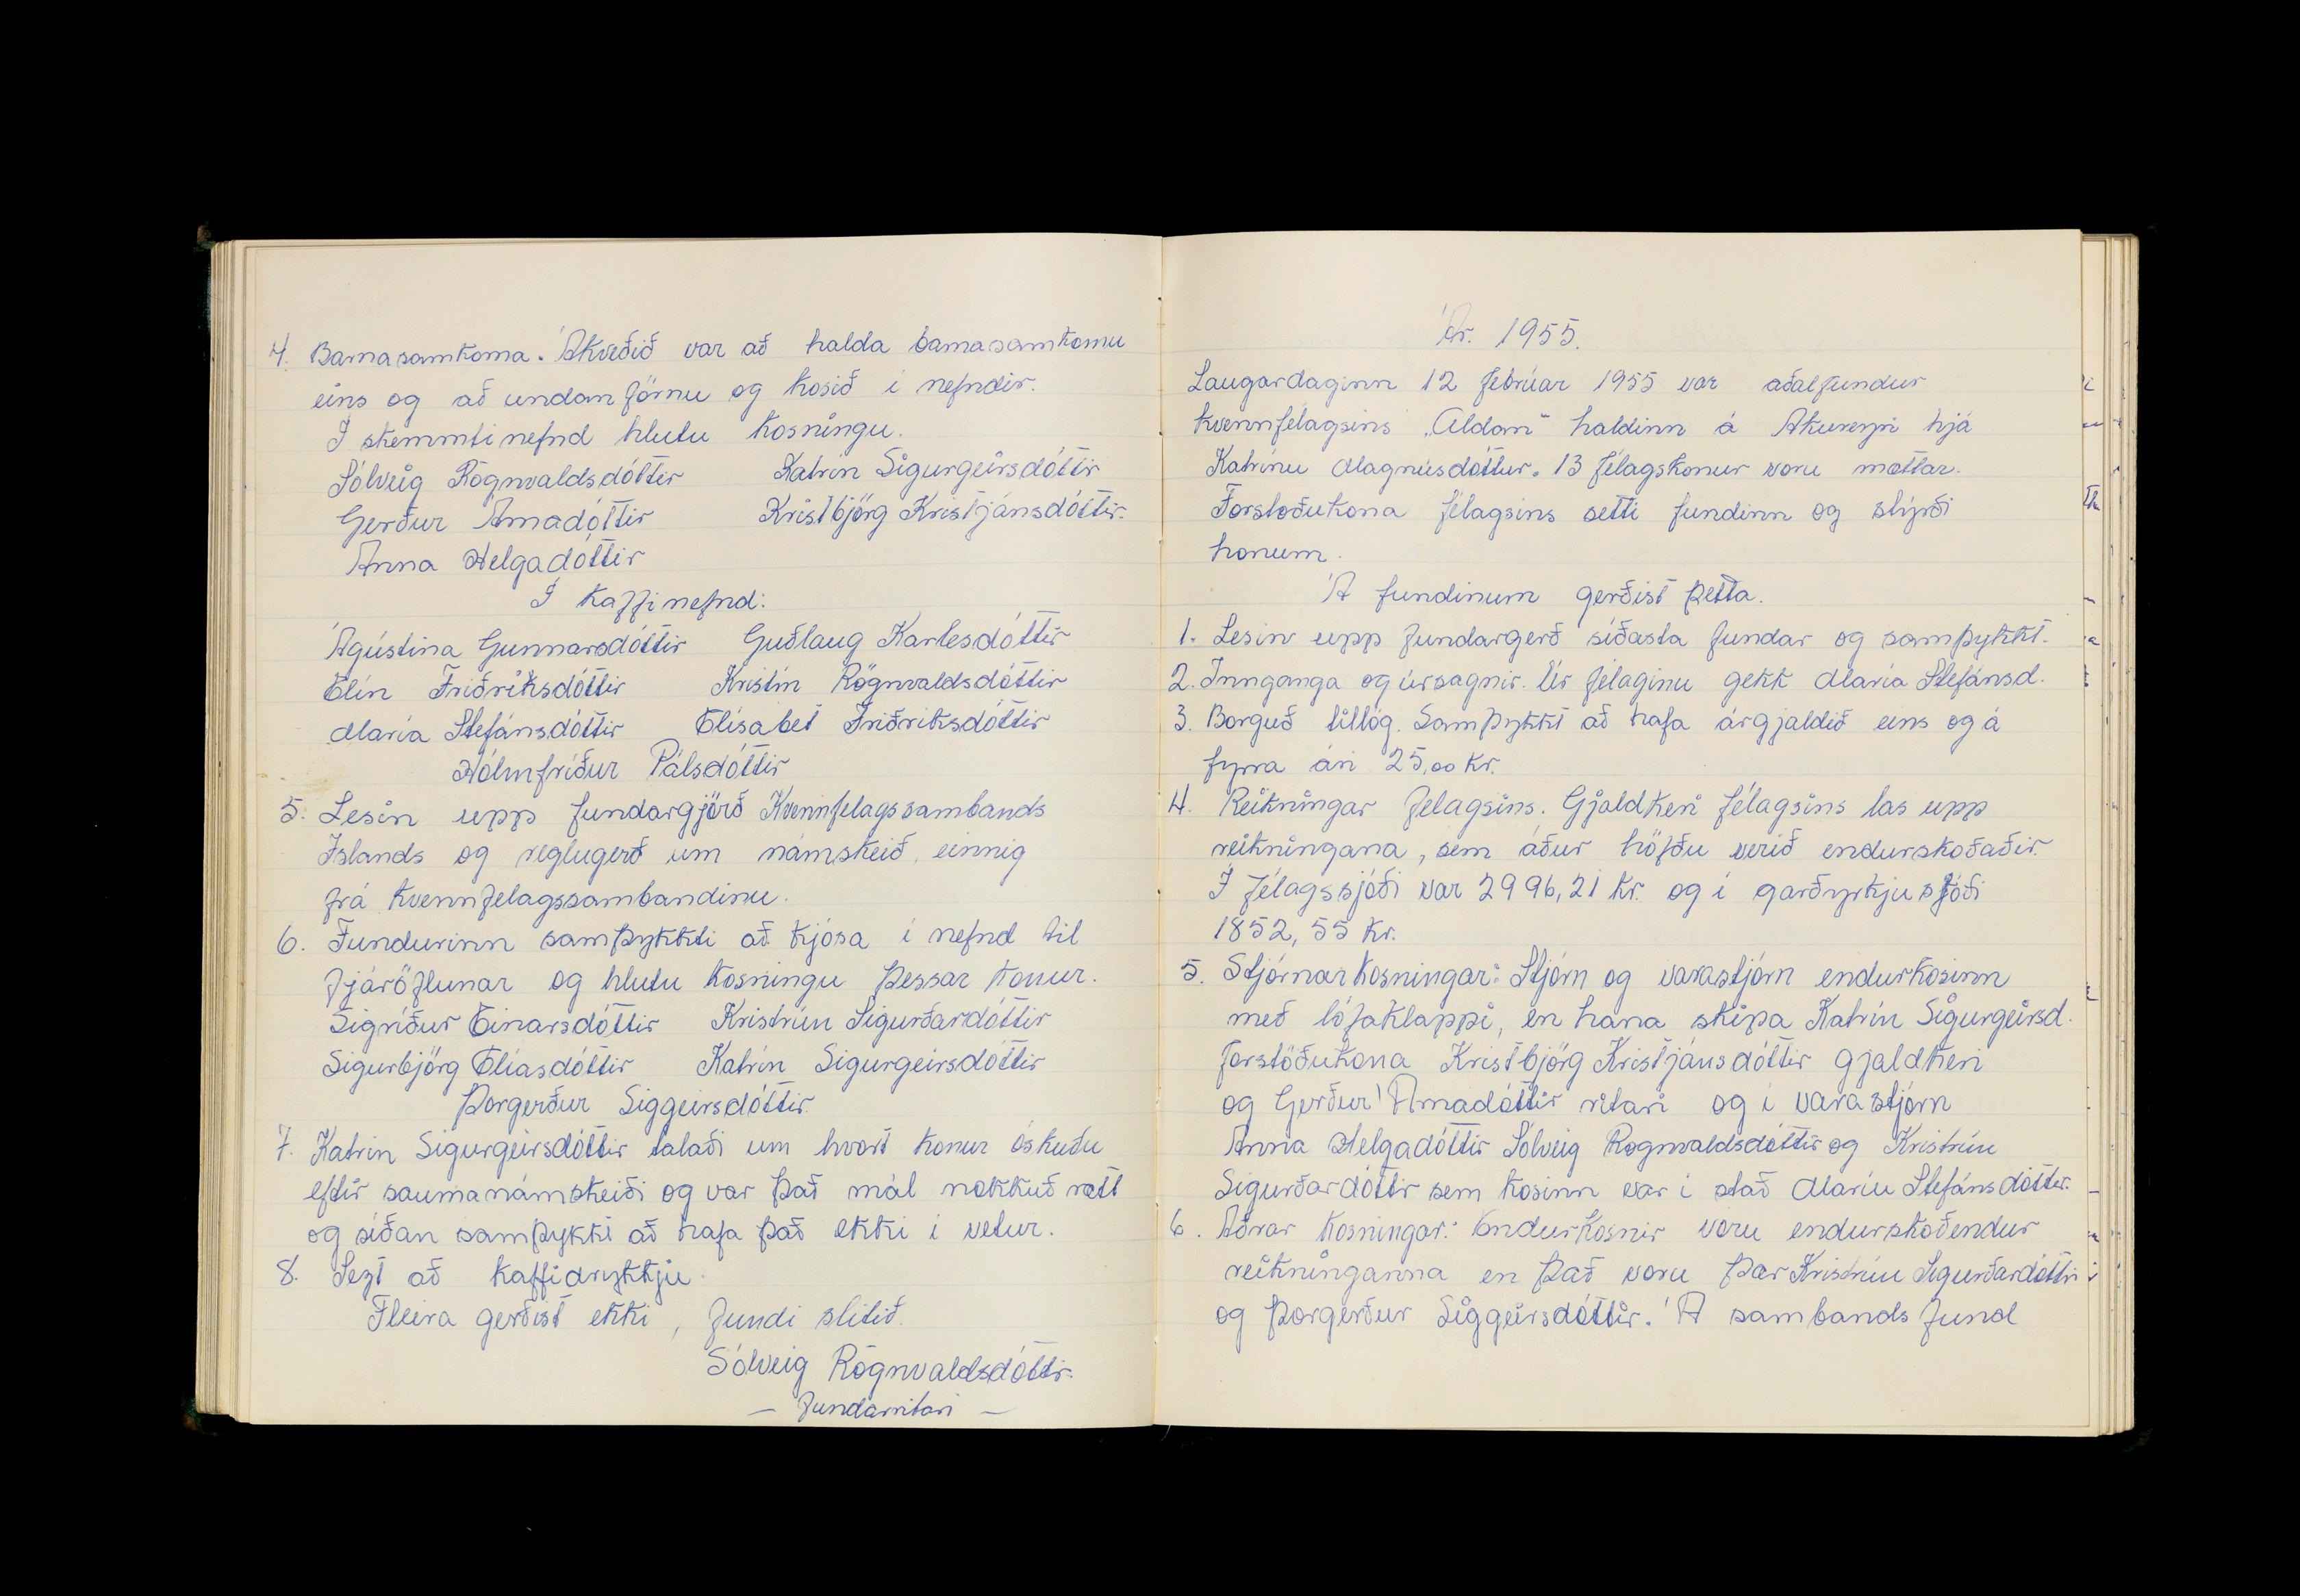 4. Barnasamkoma. Ákveðið var að halda barnasamkomu
eins og að undanförnu og kosið í nefndir.
Í skemmtinefnd hlutu kosningu.
Sólveig Rögnvaldsdóttir Katrín Sigurgeirsdóttir
Gerður Árnadóttir Kristbjörg Kristjánsdóttir.
Anna Helgadóttir
Í kaffinefnd:
Ágústína Gunnarsdóttir Guðlaug Karlesdóttir
Elín Friðriksdóttir Kristín Rögnvaldsdóttir
María Stefánsdóttir Elísabet Friðriksdóttir
Hólmfríður Pálsdóttir
5. Lesin upp fundargjörð Kvennfelagssambands
Íslands og reglugerð um námskeið, einnig
frá kvennfelagssambandinu.
6. Fundurinn samþykkti að kjósa í nefnd til
fjáröflunar og hlutu kosningu þessar konur.
Sigríður Einarsdóttir Kristrún Sigurðardóttir
Sigurbjörg Elíasdóttir Katrín Sigurgeirsdóttir
Þorgerður Siggeirsdóttir.
7. Katrín Sigurgeirsdóttir talaði um hvort konur óskuðu
eftir saumanámskeiði og var það mál nokkuð rætt
og síðan samþykkt að hafa það ekki í vetur.
8. Sezt að kaffidrykkju.
Fleira gerðist ekki, fundi slitið.
Sólveig Rögnvaldsdóttir.
— fundarritari —
Ár. 1955.
Laugardaginn 12 febrúar 1955 var aðalfundur
kvennfélagsins "Aldan" haldinn á Akureyri hjá
Katrínu Magnúsdóttur. 13 félagskonur voru mættar.
Forstoðukona félagsins setti fundinn og stýrði
honum.
Á fundinum gerðist þetta.
1. Lesin upp fundargerð síðasta fundar og samþykkt.
2. Innganga og úrsagnir. Úr félaginu gekk María Stefánsd.
3. Borguð tillög. Samþykkt að hafa árgjaldið eins og á
fyrra ári 25,00 kr.
4. Reikningar félagsins. Gjaldkeri félagsins las upp
reikningana, sem áður höfðu verið endurskoðaðir.
Í félagssjóði var 2996,21 kr. og í garðyrkjusjóði
1852,55 kr.
5. Stjórnarkosningar: Stjórn og varastjórn endurkosinn
með lófaklappi, en hana skipa Katrín Sigurgeirsd.
forstöðukona Kristbjörg Kristjánsdóttir gjaldkeri
og Gerður Árnadóttir ritari og í varastjórn
Anna Helgadóttir Sólveig Rögnvaldsdóttir og Kristrún
Sigurðardóttir sem kosinn var í stað Maríu Stefánsdóttir.
6. Aðrar kosningar: Endurkosnir voru endurskoðendur
reikninganna en það voru þær Kristrún Sigurðardóttir
og Þorgerður Siggeirsdóttir. Á sambandsfund